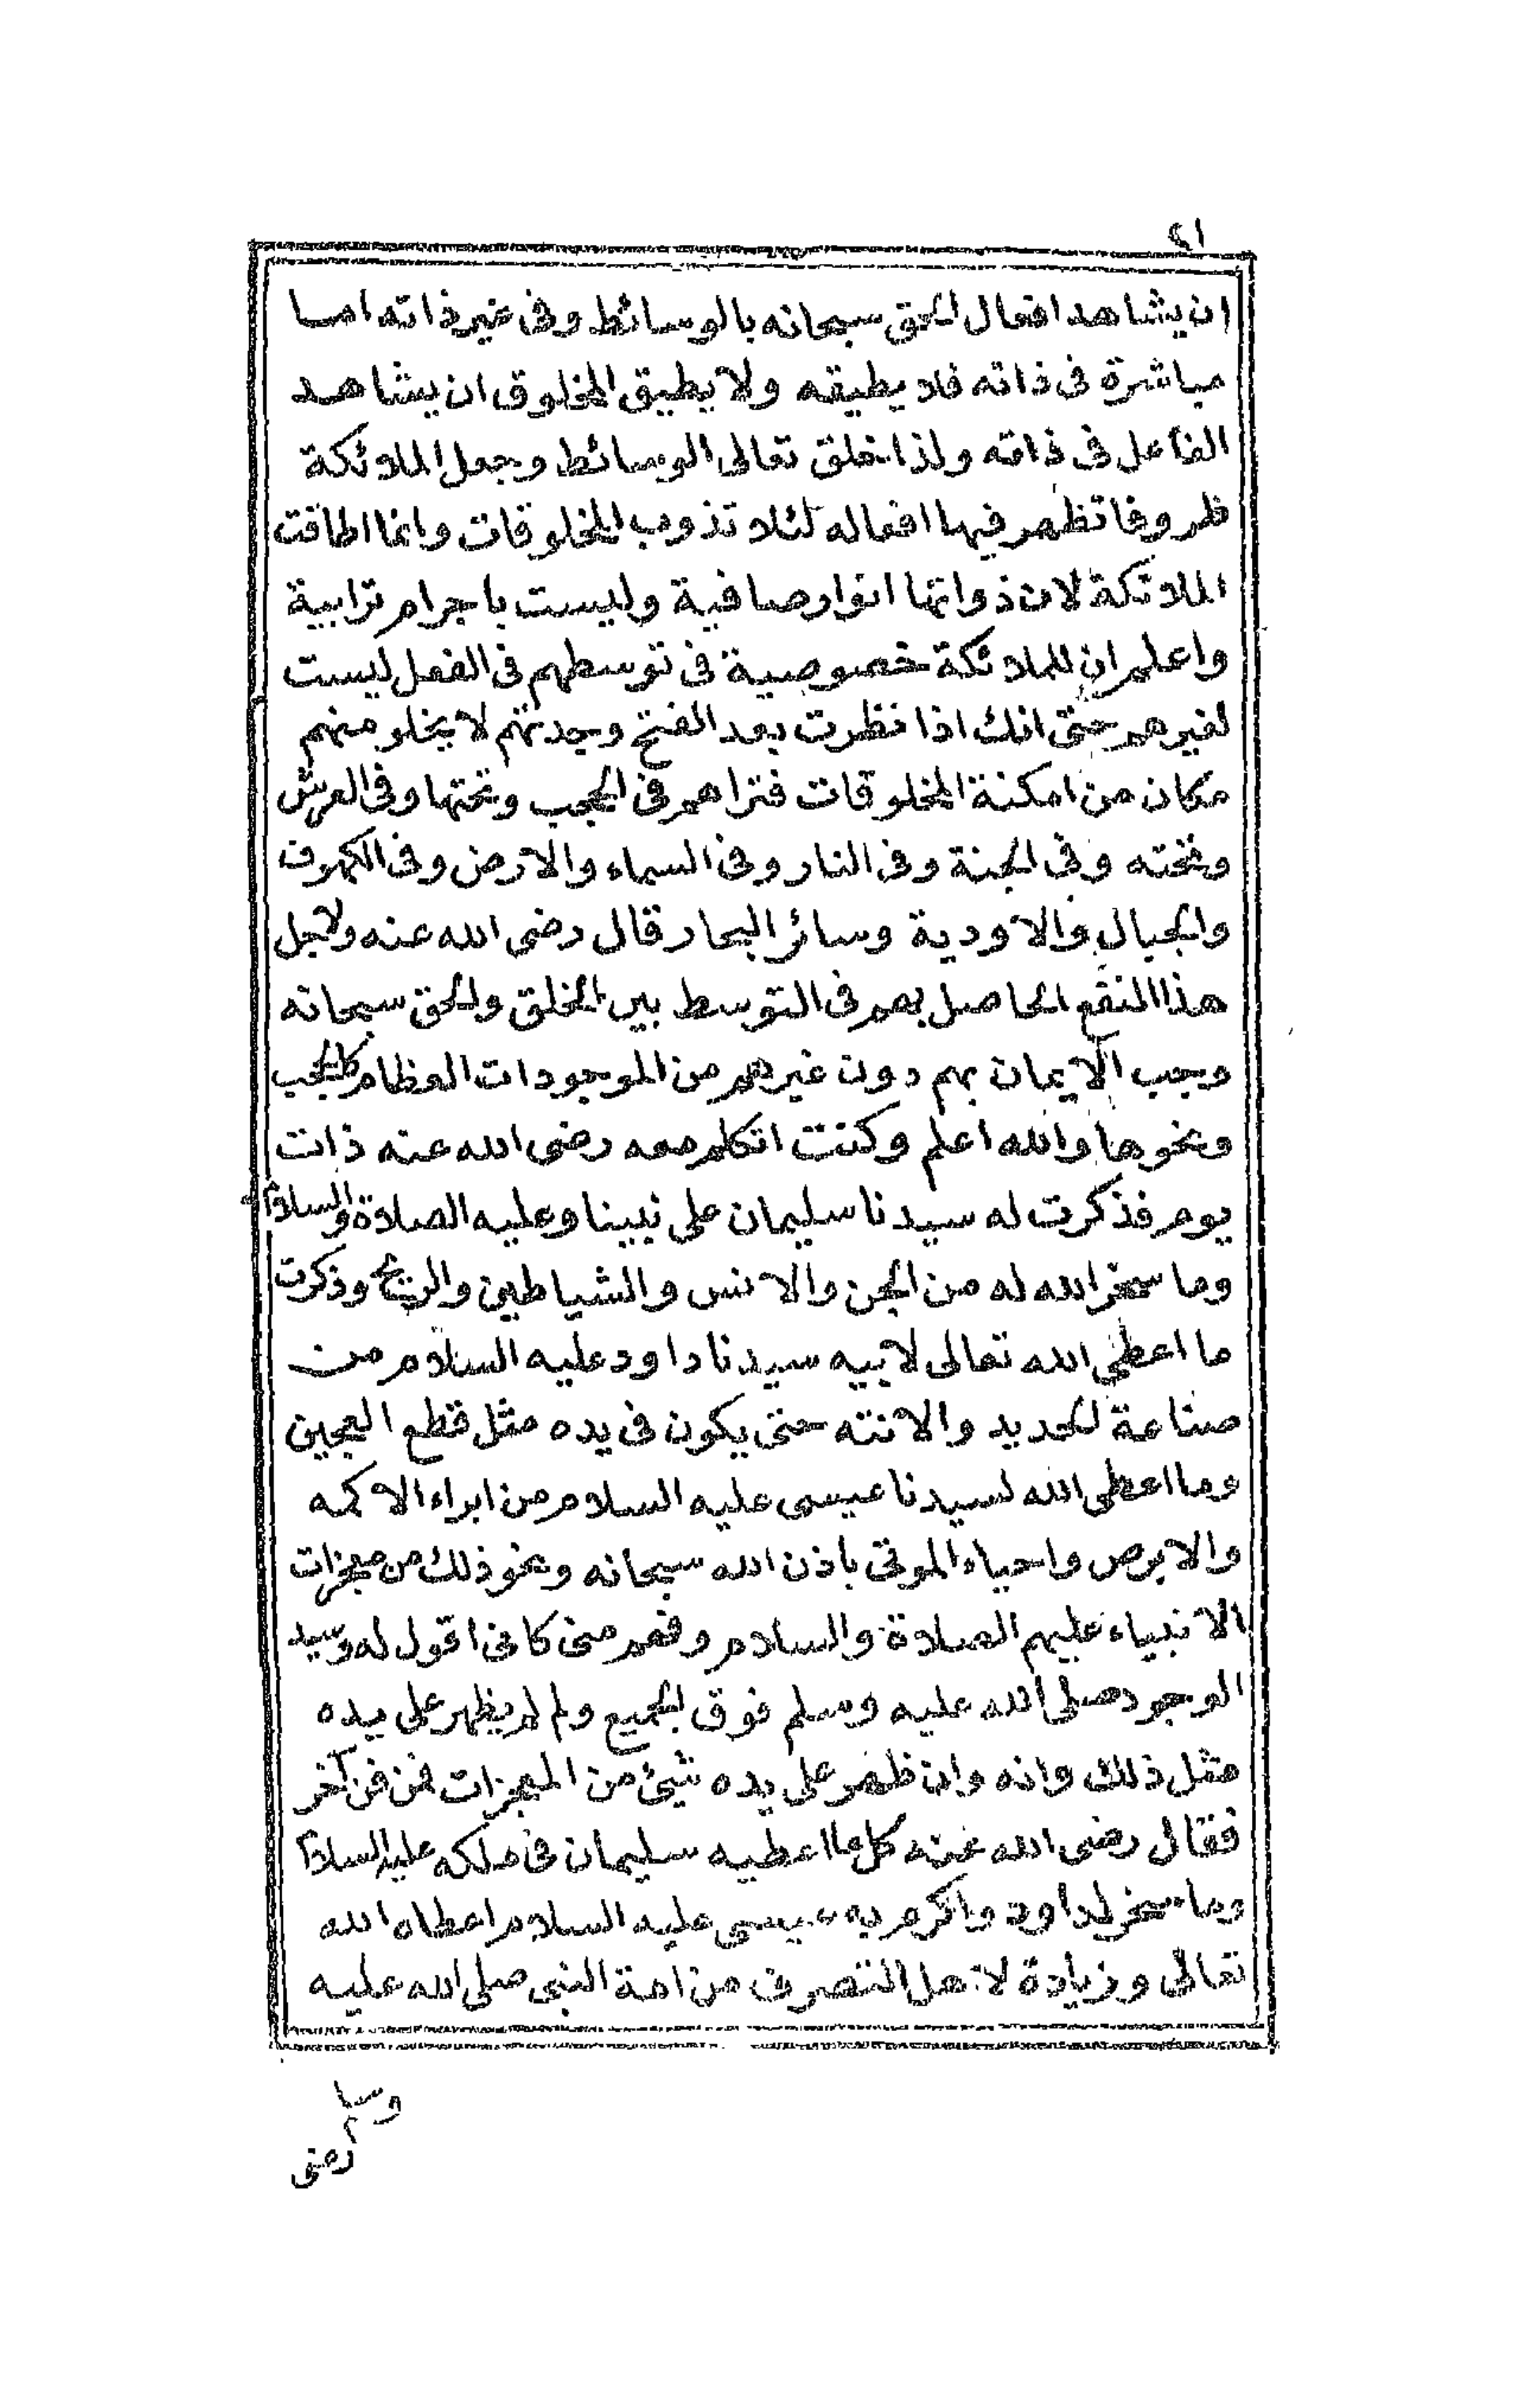 ١٢
ان يشاهد افعال الحق سبحانه بالوسائط وفى غير ذاته اما
مباشرة فى ذاته فلا يطيقه ولا يطيق المخلوق ان يشاهد
الفاعل فى ذاته ولذا خلق تعالى الوسائط وجعل الملائكة
ظروفا تظهر فيها افعاله لئلا تذوب المخلوقات وانما اطاقت
الملائكة لان ذواتها انوار صافية وليست باجرام ترابية
واعلم ان للملائكة خصوصية فى توسطهم فى الفعل ليست
لغيرهم حتى انك اذا نظرت بعد الفتح وجدتهم لا يخلو منهم
مكان من امكنة المخلوقات فتراهم فى الحجب وتحتها وفى العرش
وتحته وفى الجنة وفى النار وفى السماء والارض وفى الكهوف
والجبال والاودية وسائر البحار قال رضى الله عنه ولاجل
هذا النفع الحاصل بهم فى التوسط بين الخلق والحق سبحانه
وجب الايمان بهم دون غيرهم من الموجودات العظام كالحجب
ونحوها والله اعلم وكنت اتكلم معه رضى الله عنه ذات
يوم فذكرت له سيدنا سليمان على نبينا وعليه الصلاة والسلام
وما سخر الله له من الجن والانس والشياطين والريح وذكرت
ما اعطى الله تعالى لابيه سيدنا داود عليه السلام من
صناعة الحديد والانته حتى يكون فى يده مثل قطع العجين
وما اعطى الله لسيدنا عيسى عليه السلام من ابراء الاكمه
والابرص واحياء الموتى باذن الله سبحانه ونحو ذلك من معجزات
الانبياء عليهم الصلاة والسلام وفهم منى كانى اقول له وسيد
الوجود صلى الله عليه وسلم فوق الجميع ولم لم يظهر على يده
مثل ذلك وانه وان ظهر على يده شيئ من المعجزات فمن فن آخر
فقال رضى الله عنه كل ما اعطيه سليمان فى ملكه عليه السلام
وما سخر لداود واكرم به عيسى عليه السلام اعطاه الله
تعالى وزيادة لاهل التصرف من امة النبى صلى الله عليه
وسلم
رضى